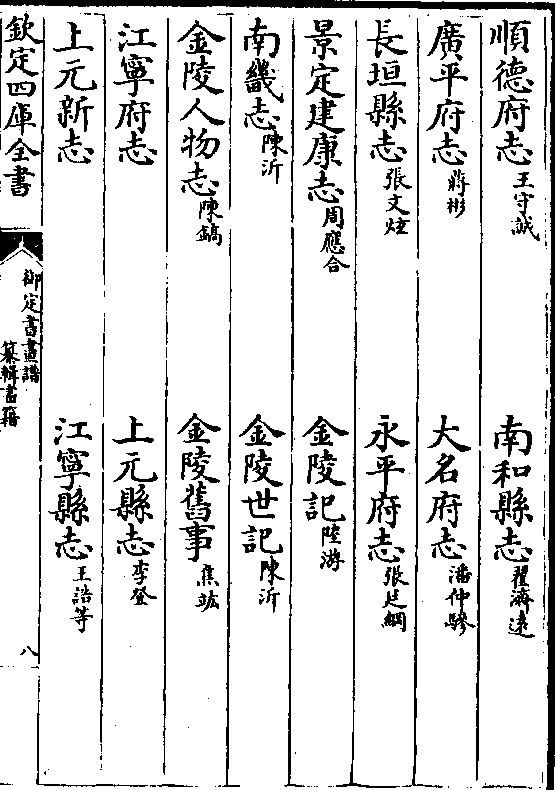 順德府志王守誠 南和縣志翟濟遠
廣平府志蔣彬 大名府志潘仲驂
長垣縣志張文炷 永平府志張廷綱
景定建康志周應合 金陵記陸游
南畿志陳沂 金陵世記陳沂
金陵人物志陳鎬 金陵舊事焦竑
江寧府志 上元縣志李登
上元新志 江寧縣志王誥等
欽定四庫全書
御定書畫譜
纂輯書籍
八